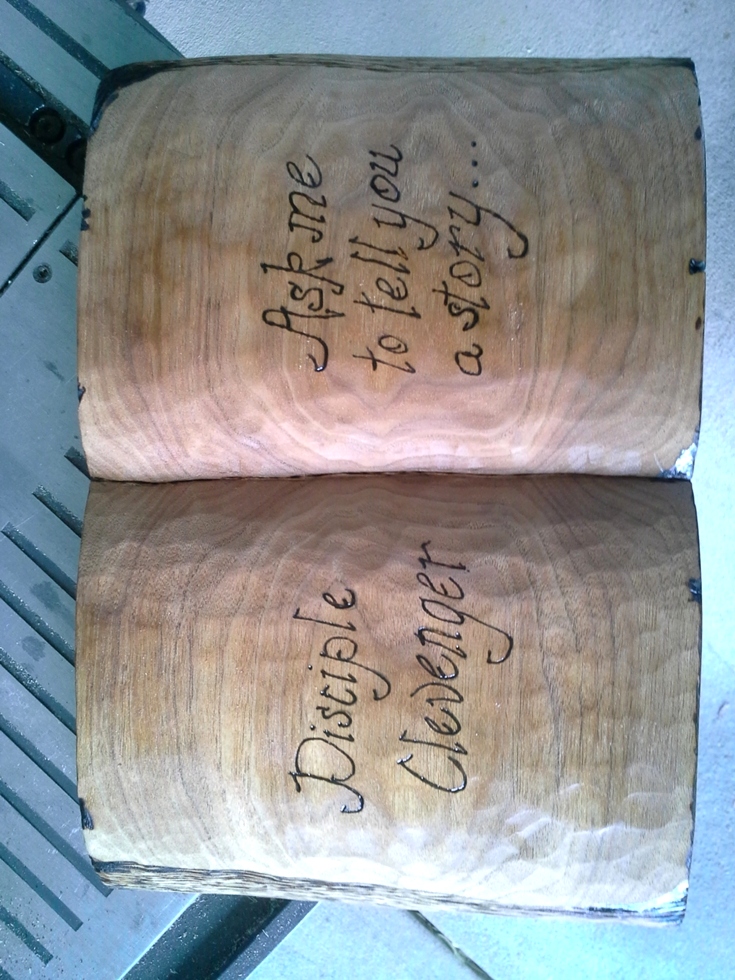 Disciple
Clevenger
Ask me
to tell you
a story...